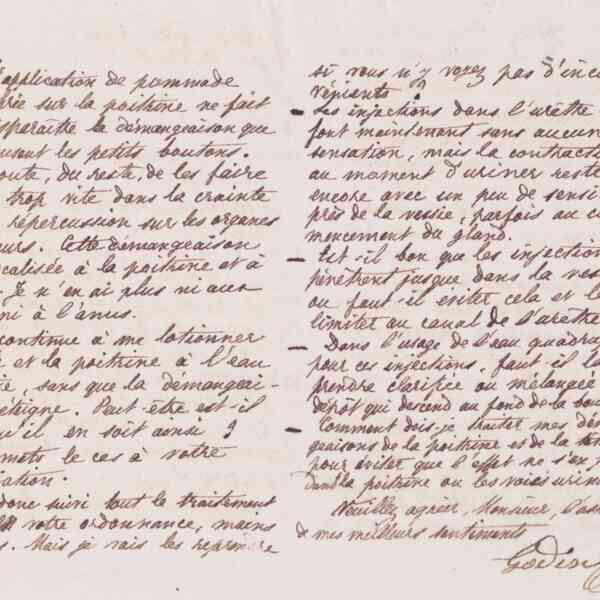 application de pommade
sur la poitrine ne fait
disparaître la démangeaison que
causent les petits boutons.
doute, du reste, de les faire
trop vite dans la crainte
répercussion sur les organes
Cette démangeaison
localisée à la poitrine et à
Je n'en ai plus ni aux
ni à l'anus.
continue à me lotionner
et la poitrine à l'eau
sans que la démangeai-
Peut-être est-il
qu'il en soit ainsi ?
mets le cas à votre
donc suivi tout le traitement
votre ordonnance, moins
Mais je vais les reprendre
si vous n'y voyez pas d'inco
- Les injections dans l'urèthre
font maintenant sans aucun
sensation, mais la contracti
au moment d'uriner reste
encore avec un peu de sensi
près de la vessie, parfois au co
mencement du gland.
- Est-il bon que les injection
pénètrent jusque dans la ves
ou faut-il éviter cela et le
limiter au canal de l'urèthre
- Dans l'usage de l'eau quadru
pour ces injections, faut-il l
prendre clarifiée ou mélangée
dépôt qui descend au fond de la bou
- Comment dois-je traiter mes dém
geaisons de la poitrine et de la
pour éviter que l'effet ne s'en
dans la poitrine ou les voies urin
Veuillez agréer, Monsieur, l'ass
de mes meilleurs sentiments
Godin